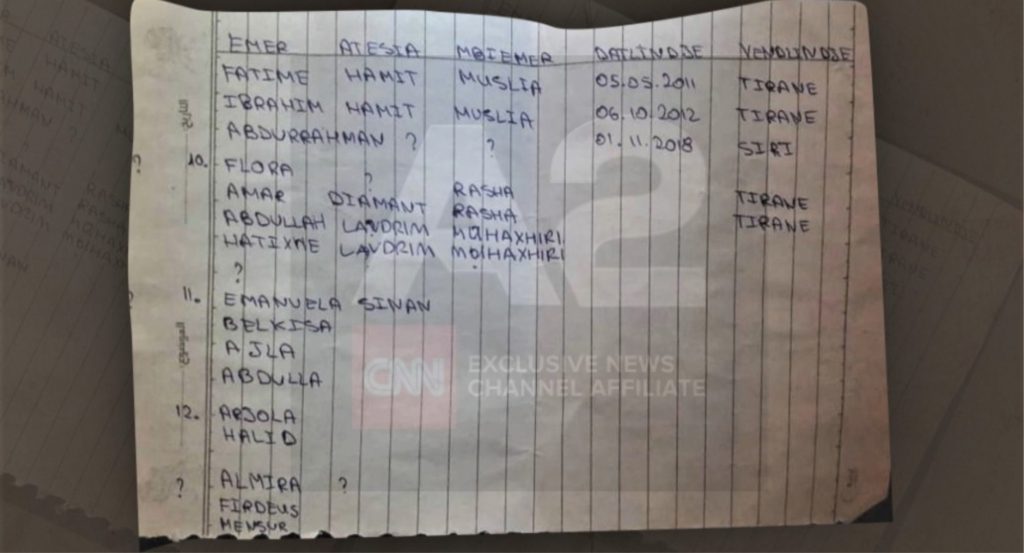 EMER ATESIA MBIEMER DATLINDJE VENDLINDJE
FATIME HAMIT MUSLIA 05.05.2011 TIRANE
IBRAHIM HAMIT MUSLIA 06.10.2012 TIRANE
ABDURRAHMAN ? ? 01.11.2018 SIRI
10. FLORA ?
AMAR DIAMANT RASHA TIRANE
ABDULLAH LAVDRIM RASHA TIRANE
HATIXHE LAVDRIM
?
11. EMANUELA SINAN
BELKISA
AJLA
ABDULLA
12. ARJOLA
HALID
? ALMIRA ?
FIRDEUS
MENSUR
A2
CNN EXCLUSIVE NEWS
CHANNEL AFFILIATE